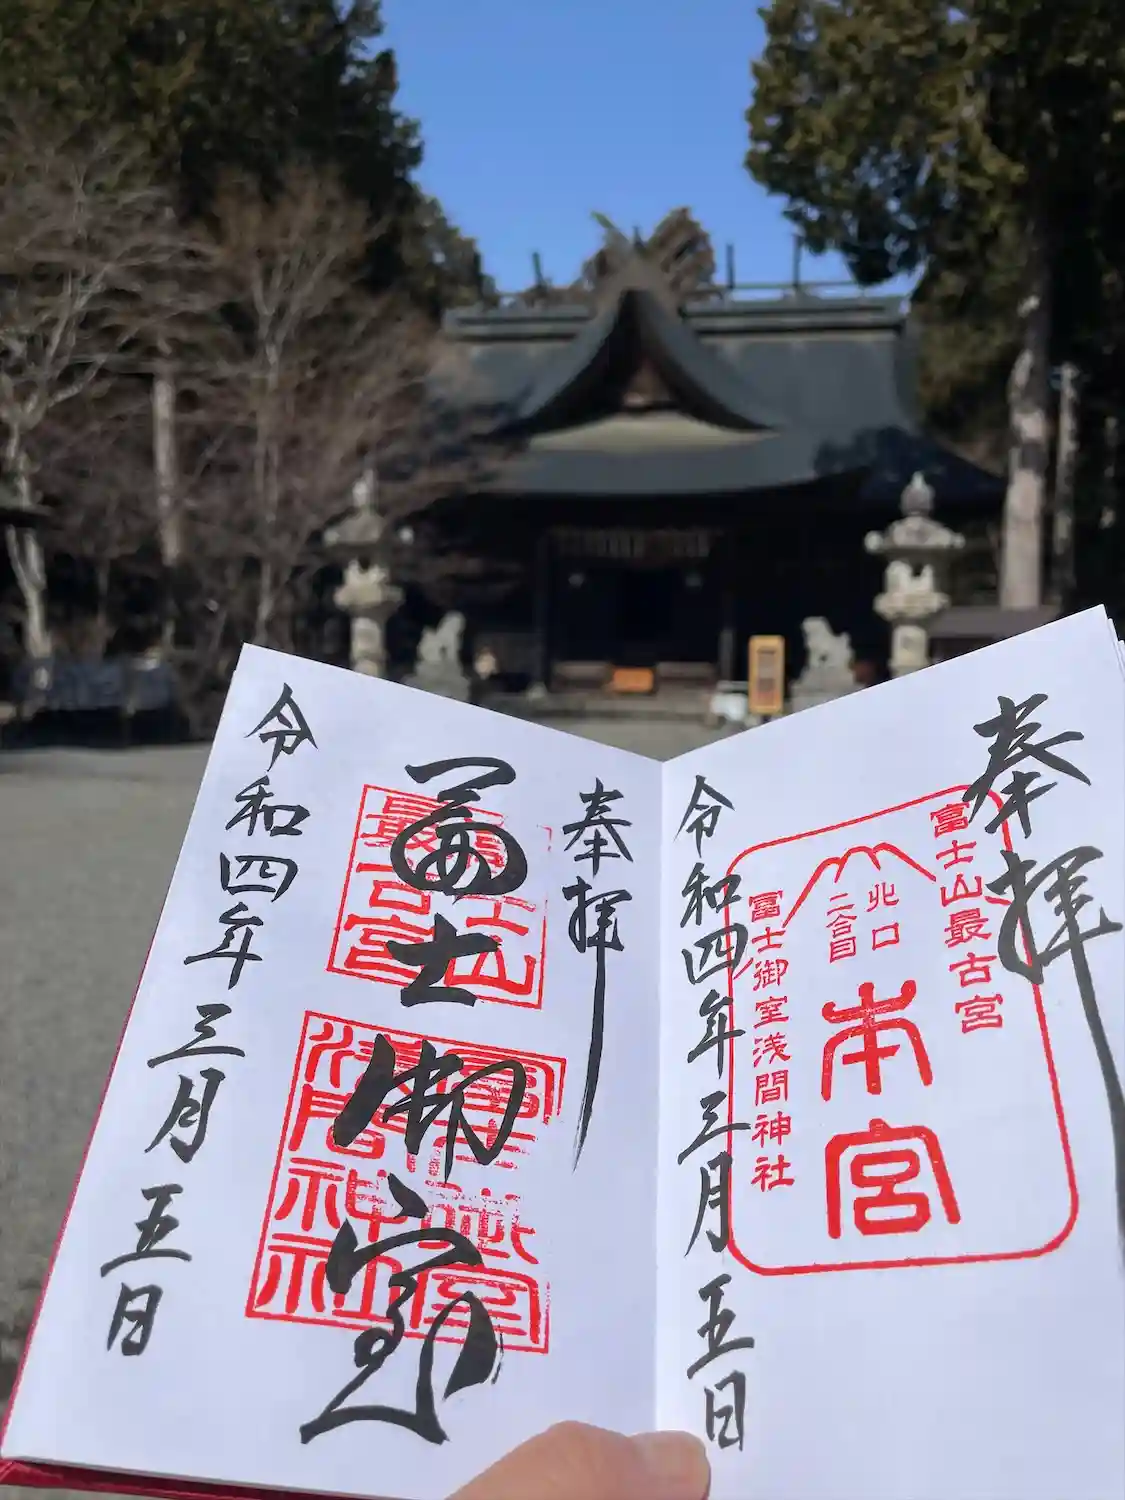 奉拝
富士山最古宮
北口
二合目
本宮
冨士御室浅間神社
令和四年三月五日
奉拝
富士山
最古宮
冨士御室
浅間神社
冨士御室
令和四年三月五日